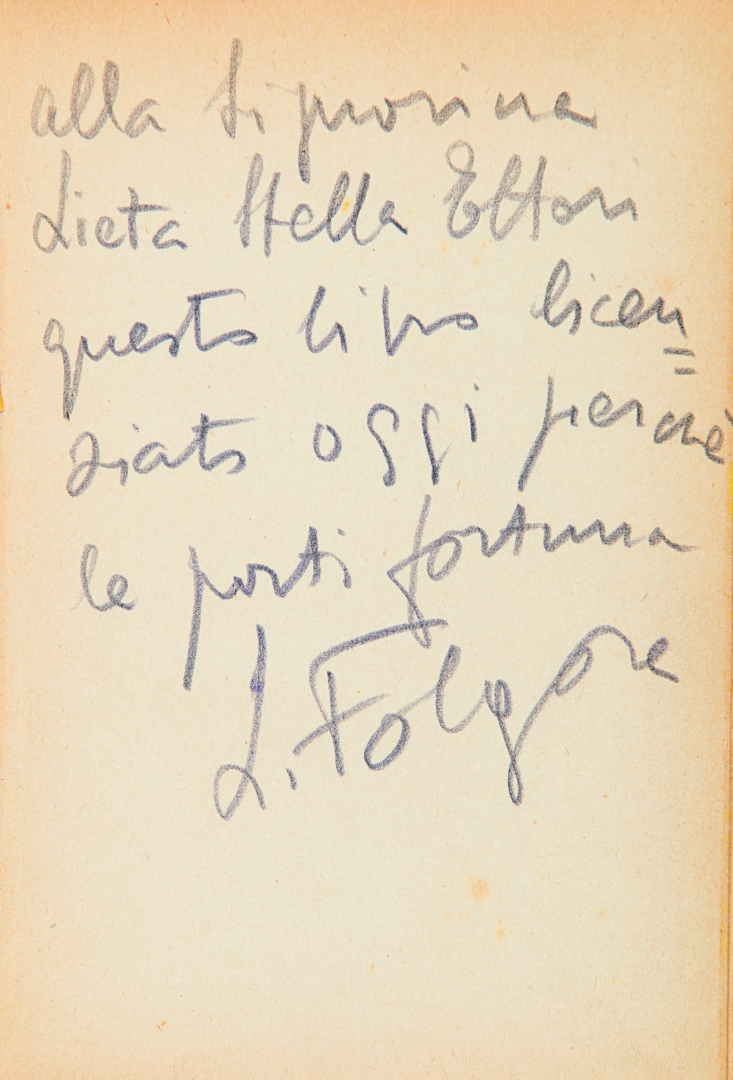 alla Signorina
Lieta Stella Ettori
questo libro licen=
ziato oggi perchè
le porti fortuna
L. Folgore